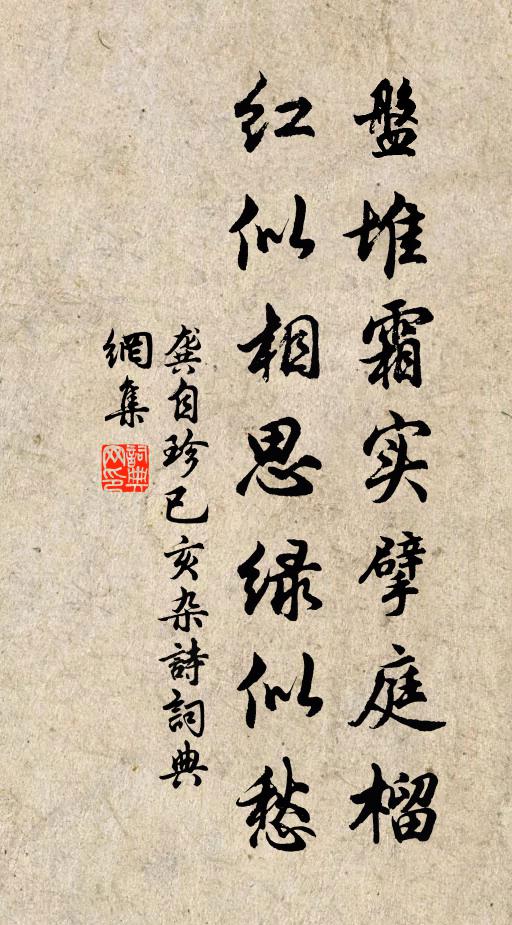 盤堆霜实擘庭榴
红似相思绿似愁
龔自珍己亥杂詩詞典
網集
詞典網印